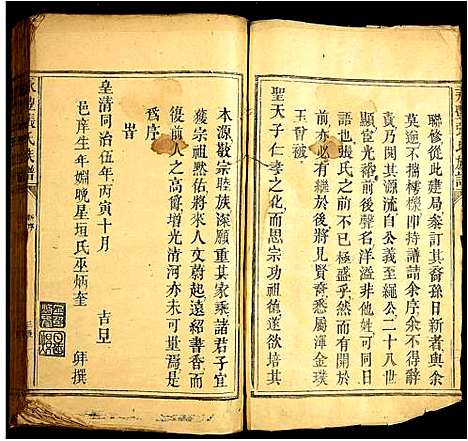 聯修從此建局纂訂其裔孫日新者與余
莫逆不揣樗櫟即持譜請序余序不得辭
責乃閱其源流自公義至繩公二十八世
貴顯前後聲名洋溢非他姓可同日
玉對被
而語張氏之興亦不已極盛乎然有開於
前必裕於後將見賢裔悉屬渾金璞
聖天子仁孝之化而思宗功祖德遂欲培其
本源敬宗睦族深願重其家乘諸君子宜
獲宗祖黙佑將來人文蔚起遠紹書香而
復前人之舊增光清河亦未可量焉是
為序
旹
皇清同治伍年丙寅十月 吉旦
邑庠生年姻晚星垣氏巫炳奎 拜撰
永豐張氏族譜